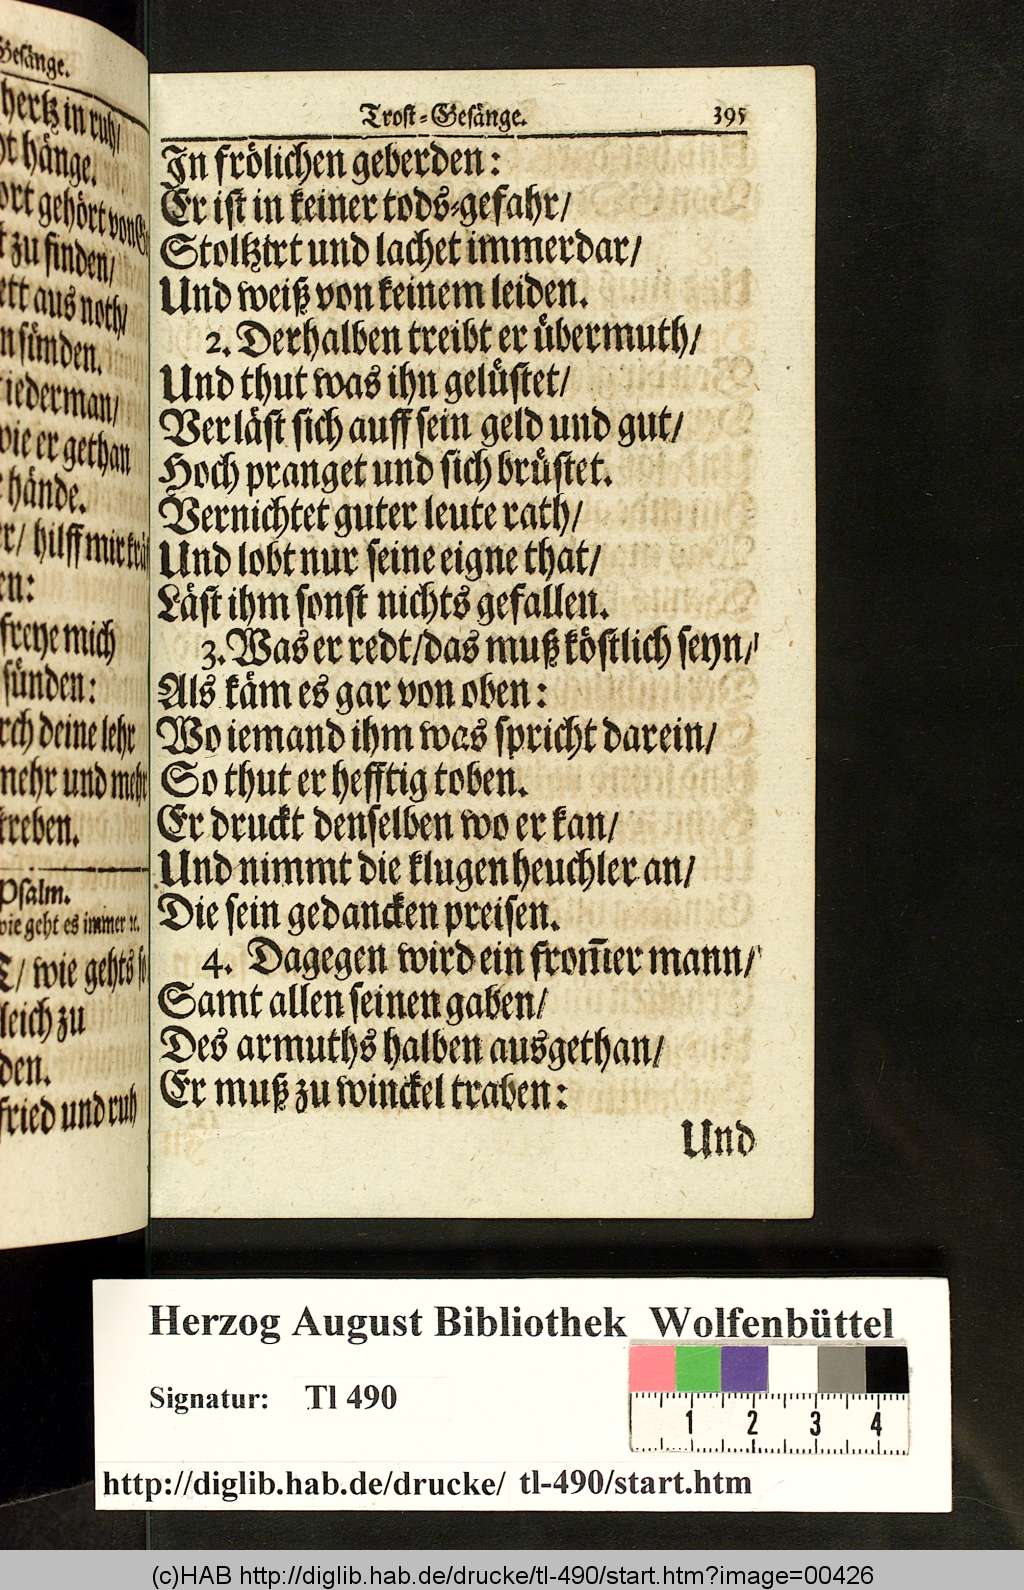 Gesänge.
hertz in ruh/
hänge.
ort gehört von
zu finden/
ett aus noth/
n sünden.
iederman/
wie er gethan
hände.
er/ hilff mir
en:
freye mich
sünden:
rch deine lehr
mehr und mehr
streben.
Psalm.
wie geht es immer ꝛc.
T/ wie gehts
leich zu
den.
fried und ruh
Trost-Gesänge. 395
In frölichen geberden:
Er ist in keiner tods-gefahr/
Stoltzirt und lachet immerdar/
Und weiß von keinem leiden.
2. Derhalben treibt er übermuth/
Und thut was ihn gelüstet/
Verläst sich auff sein geld und gut/
Hoch pranget und sich brüstet.
Vernichtet guter leute rath/
Und lobt nur seine eigne that/
Läst ihm sonst nichts gefallen.
3. Was er redt/das muß köstlich seyn/
Als käm es gar von oben:
Wo iemand ihm was spricht darein/
So thut er hefftig toben.
Er druckt denselben wo er kan/
Und nimmt die klugen heuchler an/
Die sein gedancken preisen.
4. Dagegen wird ein from̃er mann/
Samt allen seinen gaben/
Des armuths halben ausgethan/
Er muß zu winckel traben:
Und
Herzog August Bibliothek Wolfenbüttel
Signatur: Tl 490
1 2 3 4
http://diglib.hab.de/drucke/ tl-490/start.htm
(c)HAB http://diglib.hab.de/drucke/tl-490/start.htm?image=00426